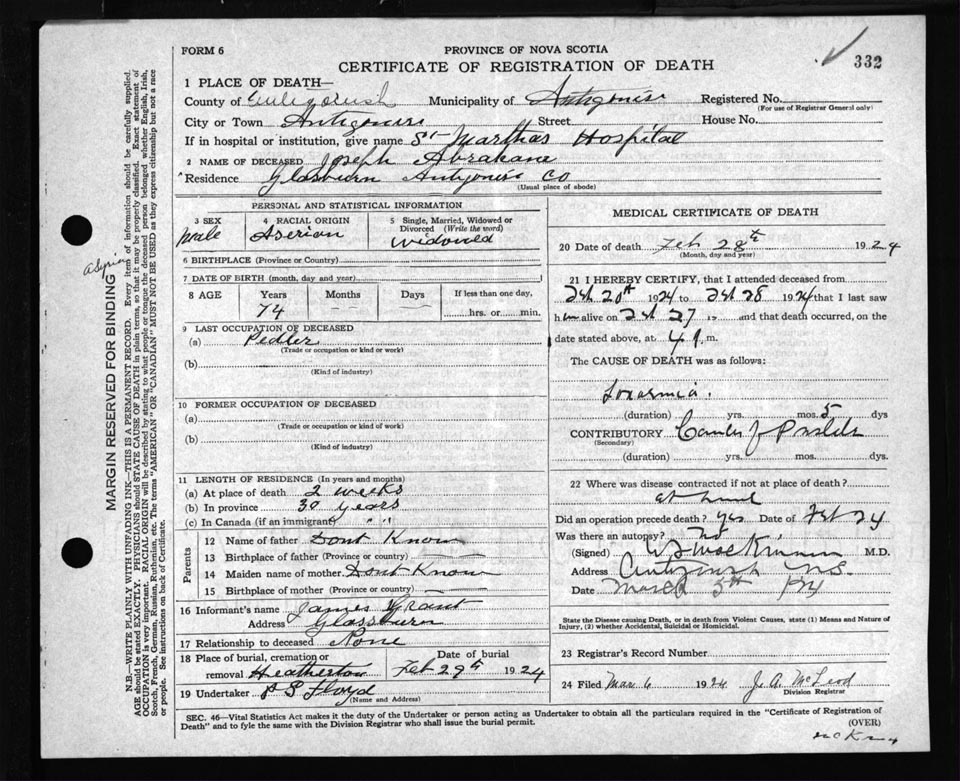 FORM 6
PROVINCE OF NOVA SCOTIA
CERTIFICATE OF REGISTRATION OF DEATH
332
1 PLACE OF DEATH—
County of Antigonish Municipality of Antigonish Registered No.
(For use of Registrar General only)
City or Town Antigonish Street House No.
If in hospital or institution, give name St Marthas Hospital
2 NAME OF DECEASED Joseph Abrahane
Residence Glasburn Antigonish Co
(Usual place of abode)
PERSONAL AND STATISTICAL INFORMATION
3 SEX male
4 RACIAL ORIGIN Aserian
5 Single, Married, Widowed or
Divorced (Write the word)
widowed
6 BIRTHPLACE (Province or Country)
7 DATE OF BIRTH (month, day and year)
8 AGE Years Months Days If less than one day,
74 – – hrs. or min.
9 LAST OCCUPATION OF DECEASED
(a) Pedler
(Trade or occupation or kind or work)
(b)
(Kind of industry)
10 FORMER OCCUPATION OF DECEASED
(a)
(Trade or occupation or kind of work)
(b)
(Kind of industry)
11 LENGTH OF RESIDENCE (In years and months)
(a) At place of death 2 weeks
(b) In province 30 years
(c) In Canada (if an immigrant) " "
Parents
12 Name of father Dont Know
13 Birthplace of father (Province or country) —
14 Maiden name of mother Dont Know
15 Birthplace of mother (Province or country) —
16 Informant's name James Grant
Address Glassburn
17 Relationship to deceased None
18 Place of burial, cremation or Date of burial
removal Heatherton Feb 29th 1924
19 Undertaker P S Floyd
(Name and Address)
MEDICAL CERTIFICATE OF DEATH
20 Date of death Feb 28th 1924
(Month, day and year)
21 I HEREBY CERTIFY, that I attended deceased from
Feb 20th 1924 to Feb 28 1924 that I last saw
him alive on Feb 27 19 and that death occurred, on the
date stated above, at 4 m.
The CAUSE OF DEATH was as follows:
Toxaemia.
(duration) yrs. mos. 5 dys
CONTRIBUTORY Cancer of
(Secondary)
(duration) yrs. mos. dys.
22 Where was disease contracted if not at place of death?
at home
Did an operation precede death? yes Date of Feb 24
Was there an autopsy? No
(Signed) MacKinnon M.D.
Address Antigonish N.S.
Date March 5th 1924
State the Disease causing Death, or in death from Violent Causes, state (1) Means and Nature of
Injury, (2) whether Accidental, Suicidal or Homicidal.
23 Registrar's Record Number
24 Filed Mar 6 1924 J. A. McLeod
Division Registrar
SEC. 46—Vital Statistics Act makes it the duty of the Undertaker or person acting as Undertaker to obtain all the particulars required in the "Certificate of Registration of
Death" and to fyle the same with the Division Registrar who shall issue the burial permit.
(OVER)
MARGIN RESERVED FOR BINDING
N.B.—WRITE PLAINLY WITH UNFADING INK—THIS IS A PERMANENT RECORD. Every item of information should be carefully supplied.
AGE should be stated EXACTLY. PHYSICIANS should STATE CAUSE OF DEATH in plain terms, so that it may be properly classified. Exact statement of
OCCUPATION is very important. RACIAL ORIGIN will be described by stating to what people or tongue the deceased person belonged whether English, Irish,
Scotch, French, German, Russian, Ruthenian, etc. The terms "AMERICAN" OR "CANADIAN" MUST NOT BE USED as they express citizenship but not a race
or people. See instructions on back of Certificate.